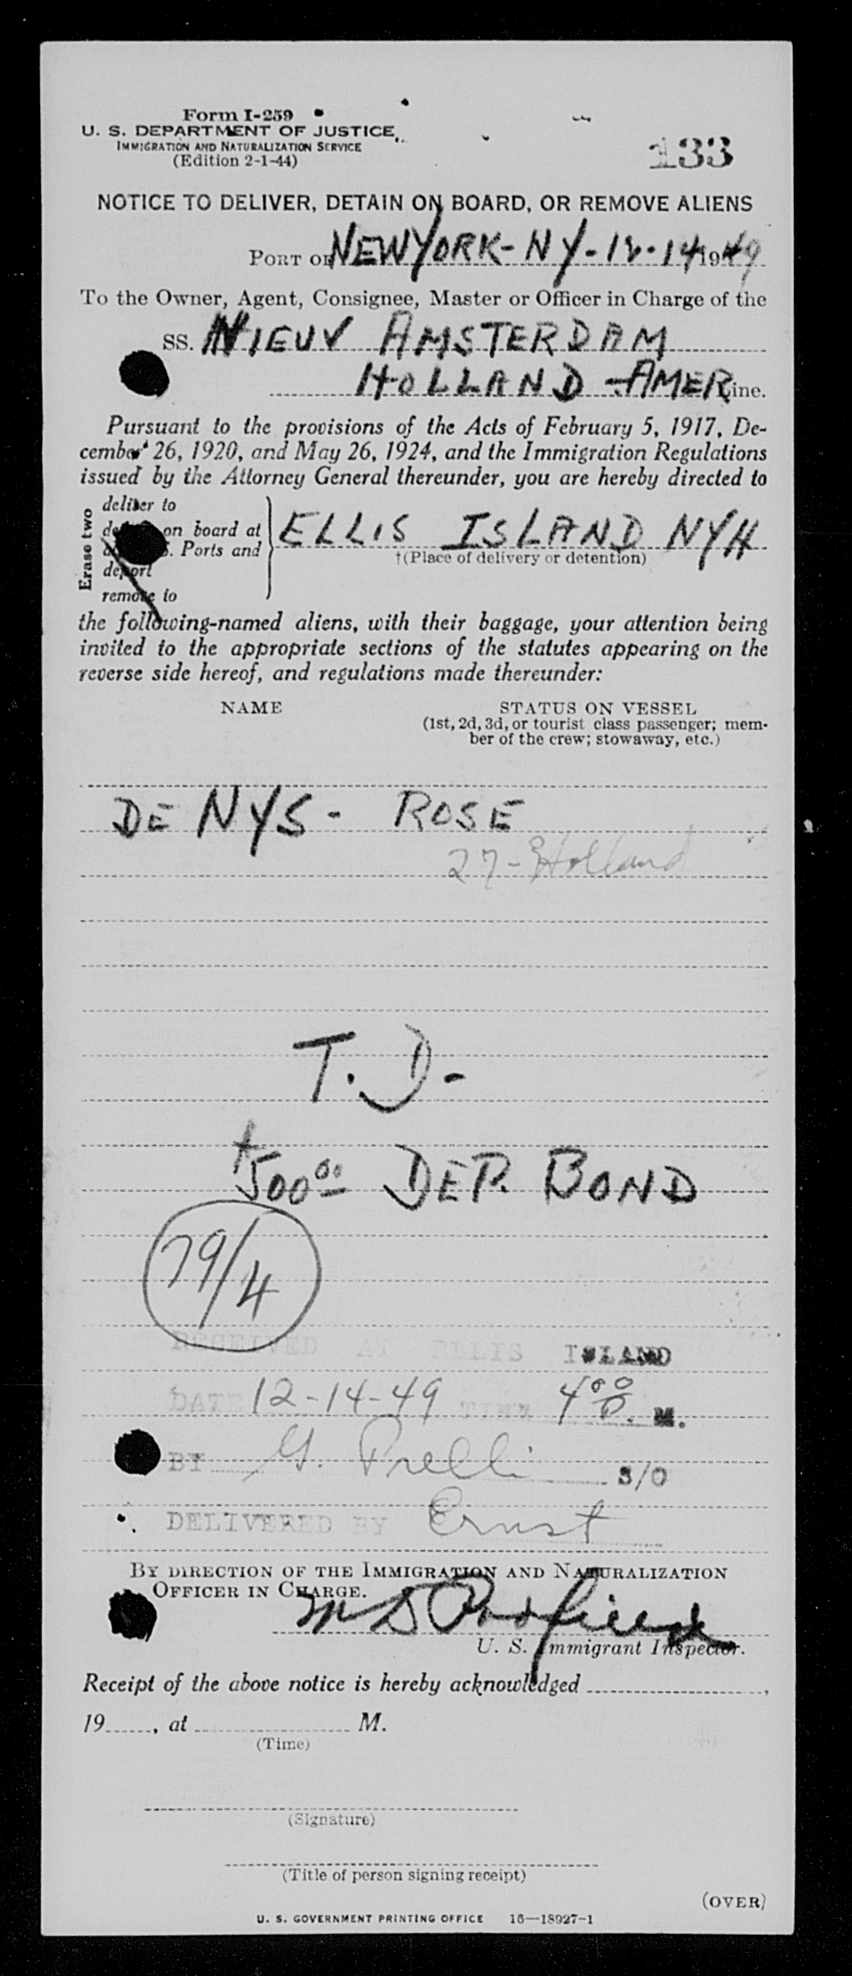 Form I-259
U. S. DEPARTMENT OF JUSTICE
IMMIGRATION AND NATURALIZATION SERVICE
(Edition 2-1-44)
133
NOTICE TO DELIVER, DETAIN ON BOARD, OR REMOVE ALIENS
PORT OF NEW YORK - NY - 12-14 1949
To the Owner, Agent, Consignee, Master or Officer in Charge of the
SS. NIEUV AMSTERDAM
HOLLAND - AMER Line.
Pursuant to the provisions of the Acts of February 5, 1917, De-
cember 26, 1920, and May 26, 1924, and the Immigration Regulations
issued by the Attorney General thereunder, you are hereby directed to
Erase two
deliver to
on board at
Ports and
deport
remove to
ELLIS ISLAND NYH
†(Place of delivery or detention)
the following-named aliens, with their baggage, your attention being
invited to the appropriate sections of the statutes appearing on the
reverse side hereof, and regulations made thereunder:
NAME
STATUS ON VESSEL
(1st, 2d, 3d, or tourist class passenger; mem-
ber of the crew; stowaway, etc.)
DE NYS - ROSE
27 - Holland
T. D -
500.00 DEP. BOND
79/4
RECEIVED AT ELLIS ISLAND
DATE 12-14-49 TIME 4 00 P. M.
BY G. Prelli S/O
DELIVERED BY Ernst
BY DIRECTION OF THE IMMIGRATION AND NATURALIZATION
OFFICER IN CHARGE.
U. S. Immigrant Inspector.
Receipt of the above notice is hereby acknowledged ,
19 , at M.
(Time)
(Signature)
(Title of person signing receipt)
(OVER)
U. S. GOVERNMENT PRINTING OFFICE 16—18927-1